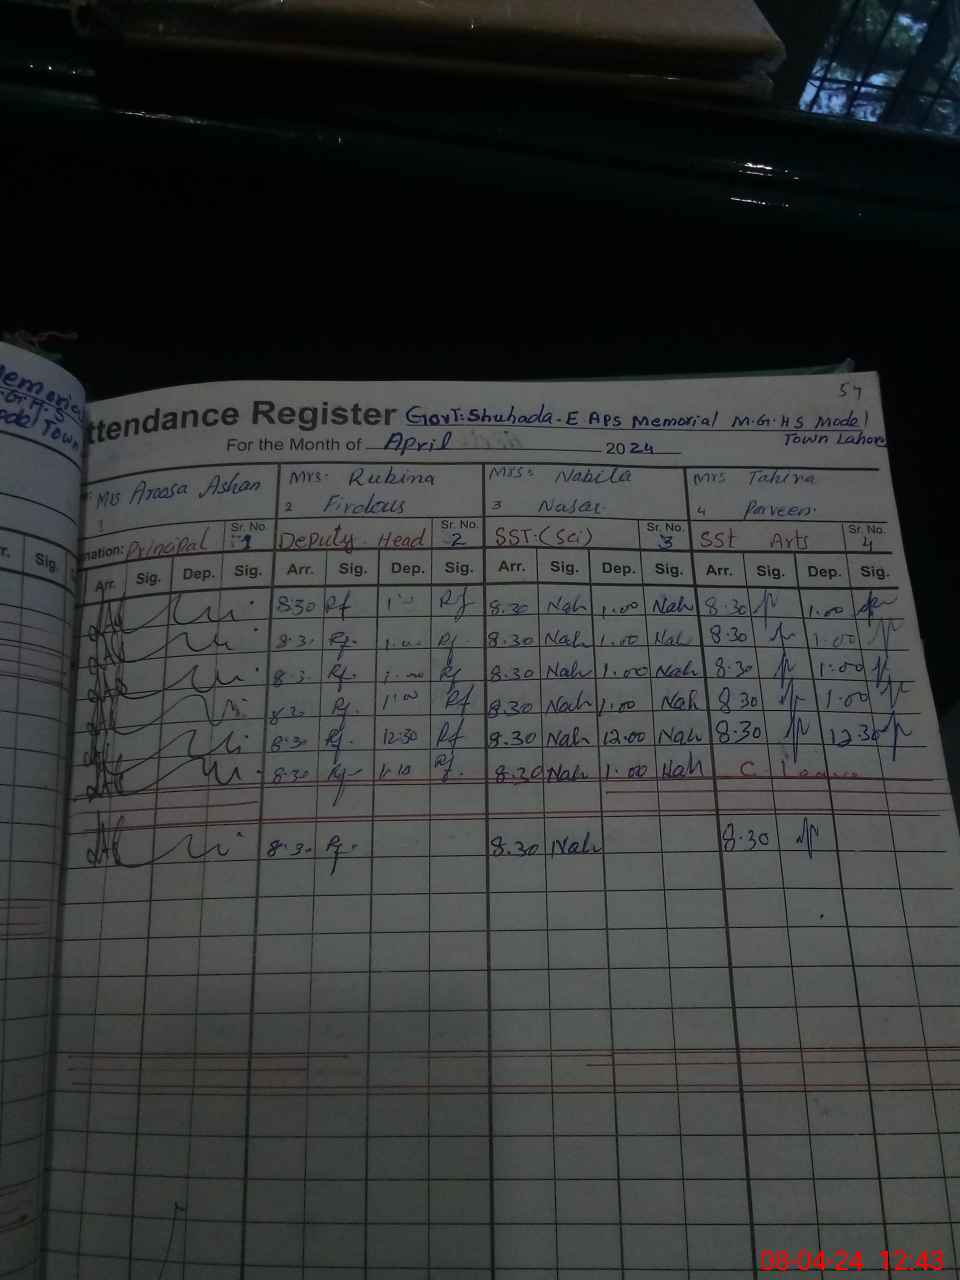 57
ttendance Register Govt: Shuhada-E APS Memorial M.G.H.S Model
Town Lahore
For the Month of April 2024
Mrs Aroosa Ashan
Mrs: Rubina
Firdous
Mrs: Nabila
Mrs Tahira
Parveen.
1
2
3
4
nation: Principal Sr. No. 1 Deputy Head Sr. No. 2 SST:(Sci) Sr. No. 3 SSt Arts Sr. No. 4
r. Sig. Arr. Sig. Dep. Sig. Arr. Sig. Dep. Sig. Arr. Sig. Dep. Sig. Arr. Sig. Dep. Sig.
8:30 Rf Rf 8.30 Nah 1.00 Nah 8.30 1.00
8.3. Rf. Rf. 8.30 Nah 1.00 Nah 8.30 1.00
8.3. Rf. Rf 8.30 Nah 1.00 Nah 8.30 1:00
8.30 Rf. 1:00 Rf 8.30 Nah 1.00 Nah 8.30 1.00
8.30 Rf. 12:30 Rf 8.30 Nah 12.00 Nah 8.30 12.30
8.30 Rf 1.10 Rf. 8.30 Nah 1.00 Nah C. Leave
8.30 Rf. 8.30 Nah 8.30
emorial
.G.H.S
odel Town
08-04-24 12:43